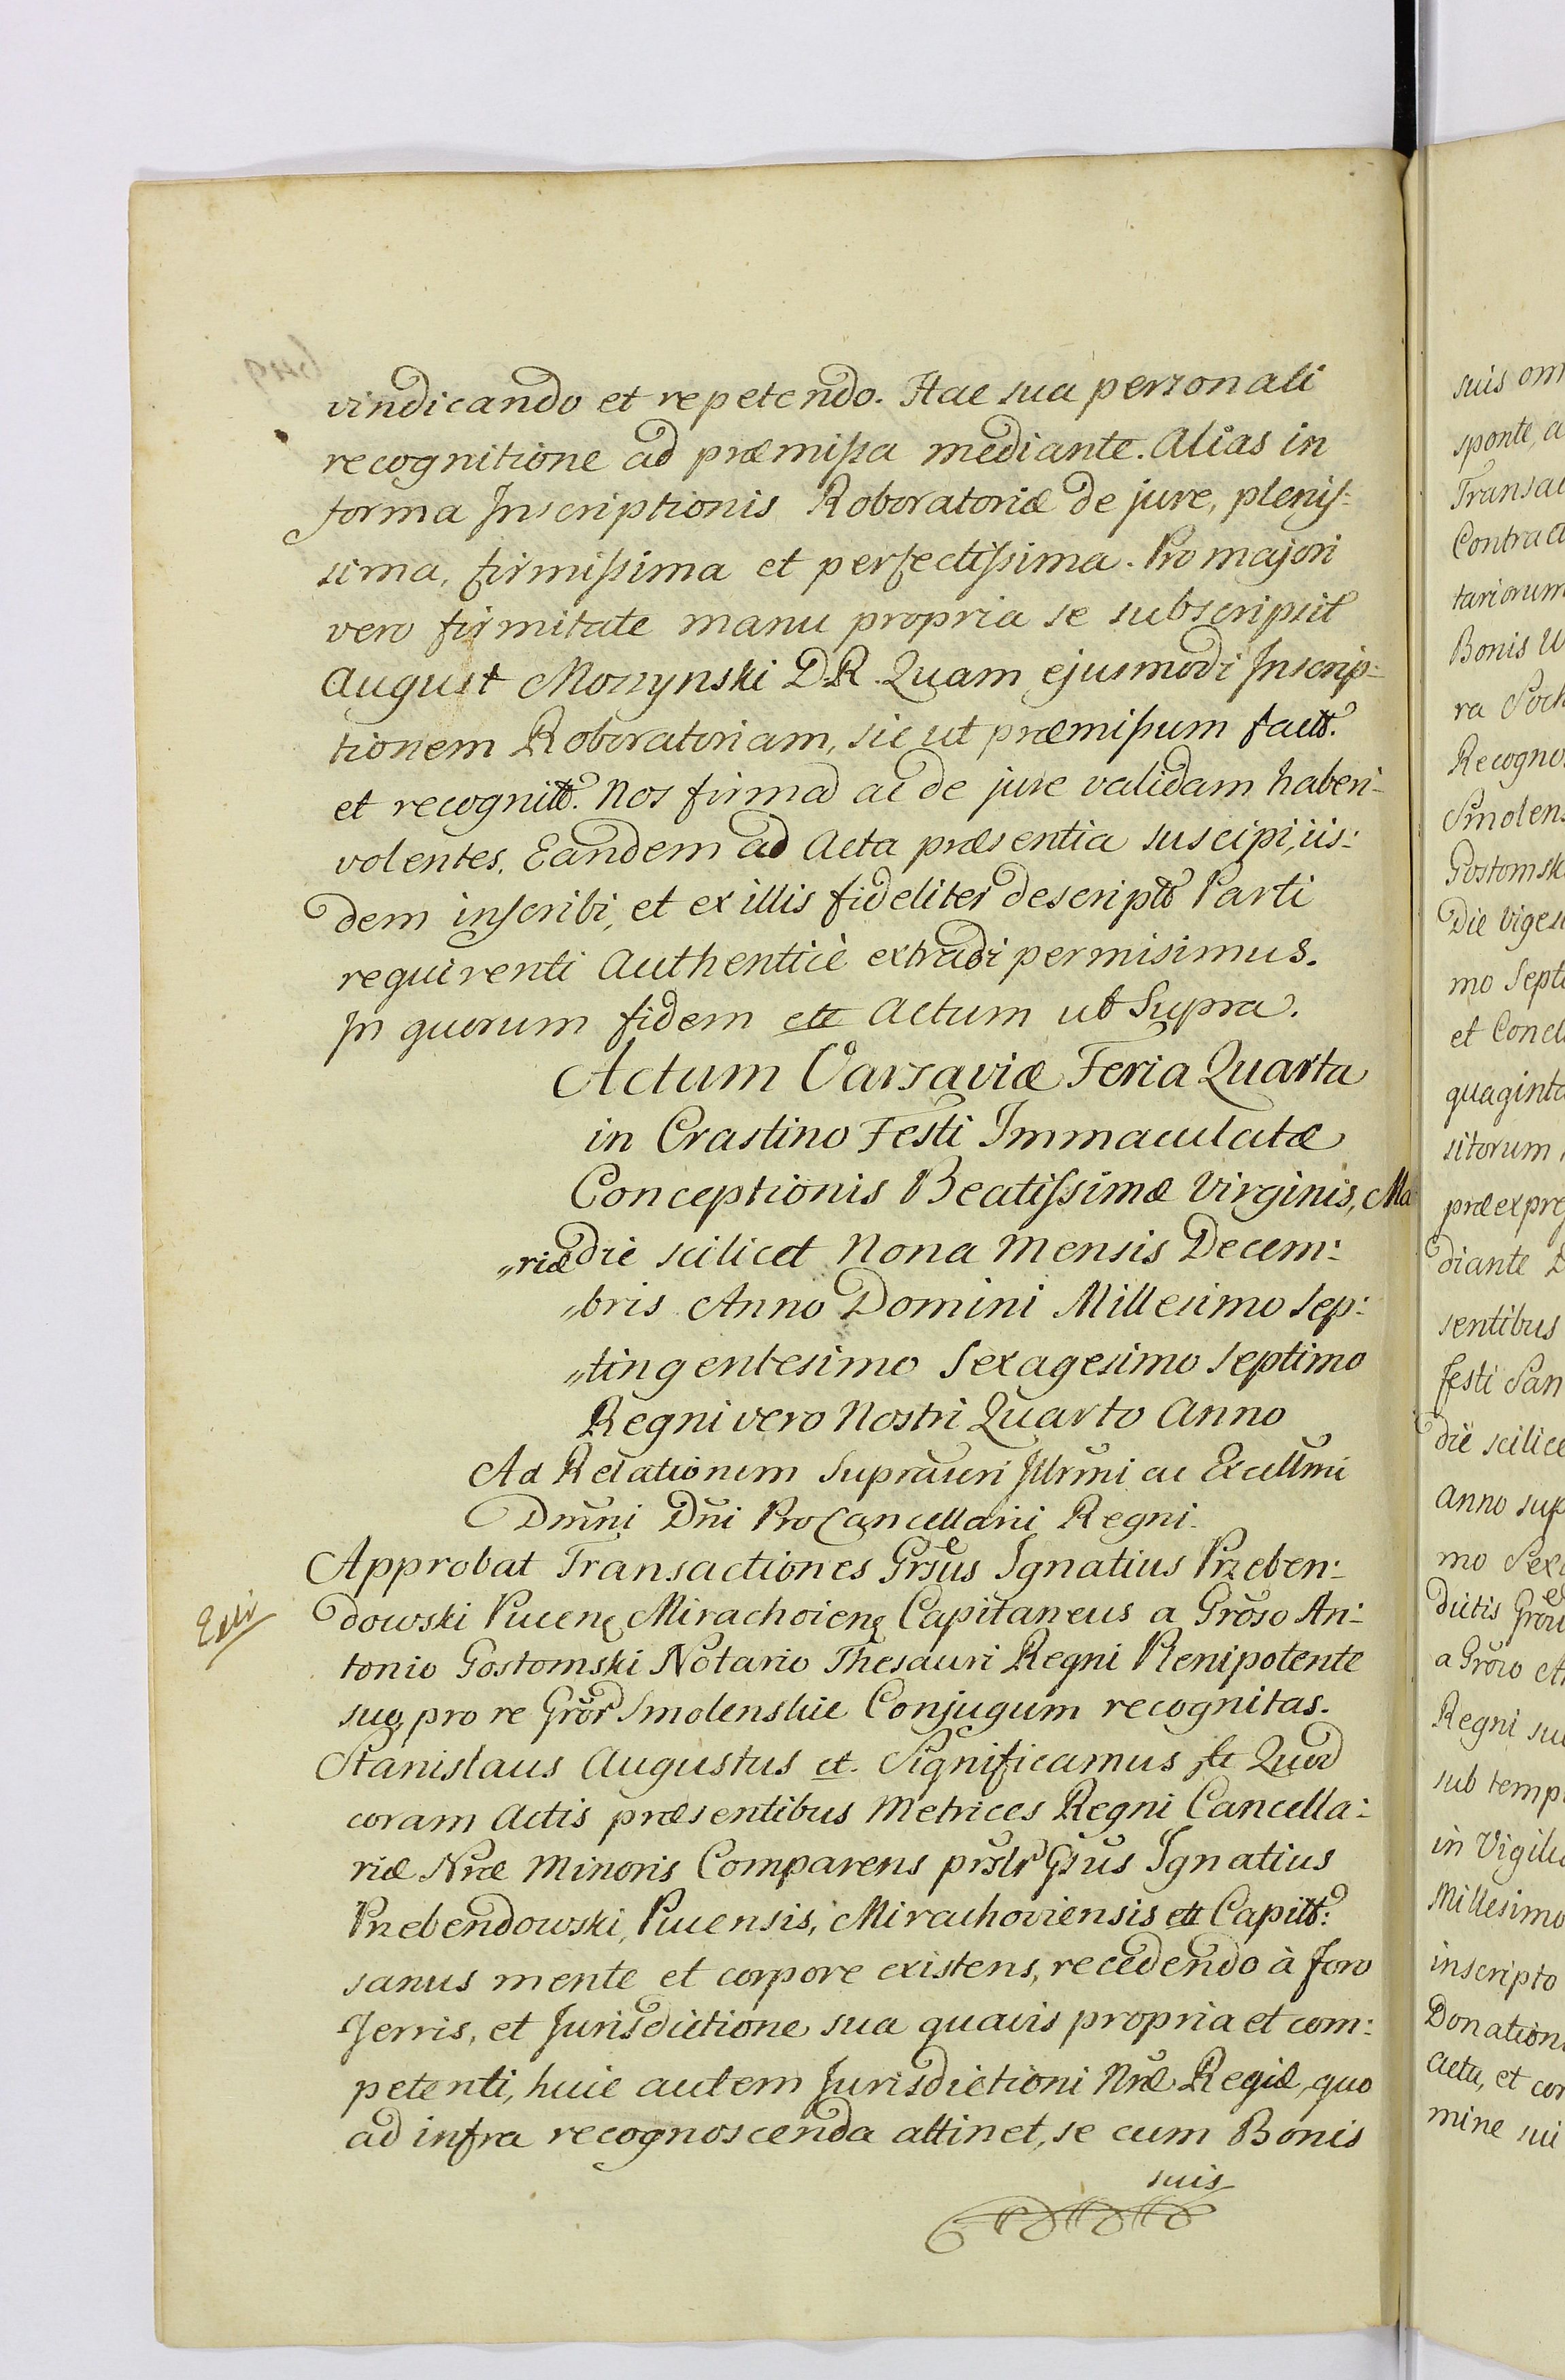 vindicando et repetendo. Hac sua personali
recognitione ad præmissa mediante. Alias in
forma Inscriptionis Roboratoriæ de jure, plenis-
sima, firmissima et perfectissima. Pro majori
vero firmitate manu propria se subscripsit
August Moszynski DR. Quam ejusmodi Inscrip-
tionem Roboratoriam, sic ut præmissum factt.
et recognitt. Nos firmā ac de jure validam haberi
volentes. Eandem ad Acta præsentia suscipi, iis:
dem inscribi, et ex illis fideliter descriptt Parti
requirenti Authenticè extradi permisimus.
In quorum fidem ett Actum ut Supra.
Actum Varsaviæ Feria Quarta
in Crastino Festi Immaculatæ
Conceptionis Beatissimæ Virginis, Ma
„riæ die scilicet Nona Mensis Decem:
„bris Anno Domini Millesimo Sep:
„tingentesimo Sexagesimo Septimo
Regni vero Nostri Quarto Anno
Ad Relationem Supraūeri Illrmi ac Excellmi
Dmni Dni ProCancellarii Regni.
Approbat Transactiones Grsus Ignatius Przeben:
Exiv
dowski Pucen Mirachoien Capitaneus a Groso An:
tonio Gostomski Notario Thesauri Regni Plenipotente
suo, pro re Gror Smolenskie Conjugum recognitas.
Stanislaus Augustus et. Significamus ett Quod
coram Actis præsentibus Metrices Regni Cancella:
riæ Nræ Minoris Comparens prslr Gsus Ignatius
Przebendowski, Pucensis, Mirachoviensis ett Capitt:
sanus mente et corpore existens, recedendo à foro
Terris, et Jurisdictione sua quavis propria et com:
petenti, huic autem Jurisdictioni Nræ Regiæ, quo
ad infra recognoscenda attinet, se cum Bonis
suis
suis om
sponte, a
Transac
Contract
tariorum
Bonis U
ra Soch
Recogno
Smolens
Gostomsk
Die Vigesi
mo Septi
et Concl
quaginta
sitorum
præexpre
diante D
sentibus
festi San
die scilice
Anno sup
mo Sexa
dictis Gro
a Groso A
Regni su
sub temp
in Vigilia
Millesimo
inscripto
Donation
actu, et cor
mine sui